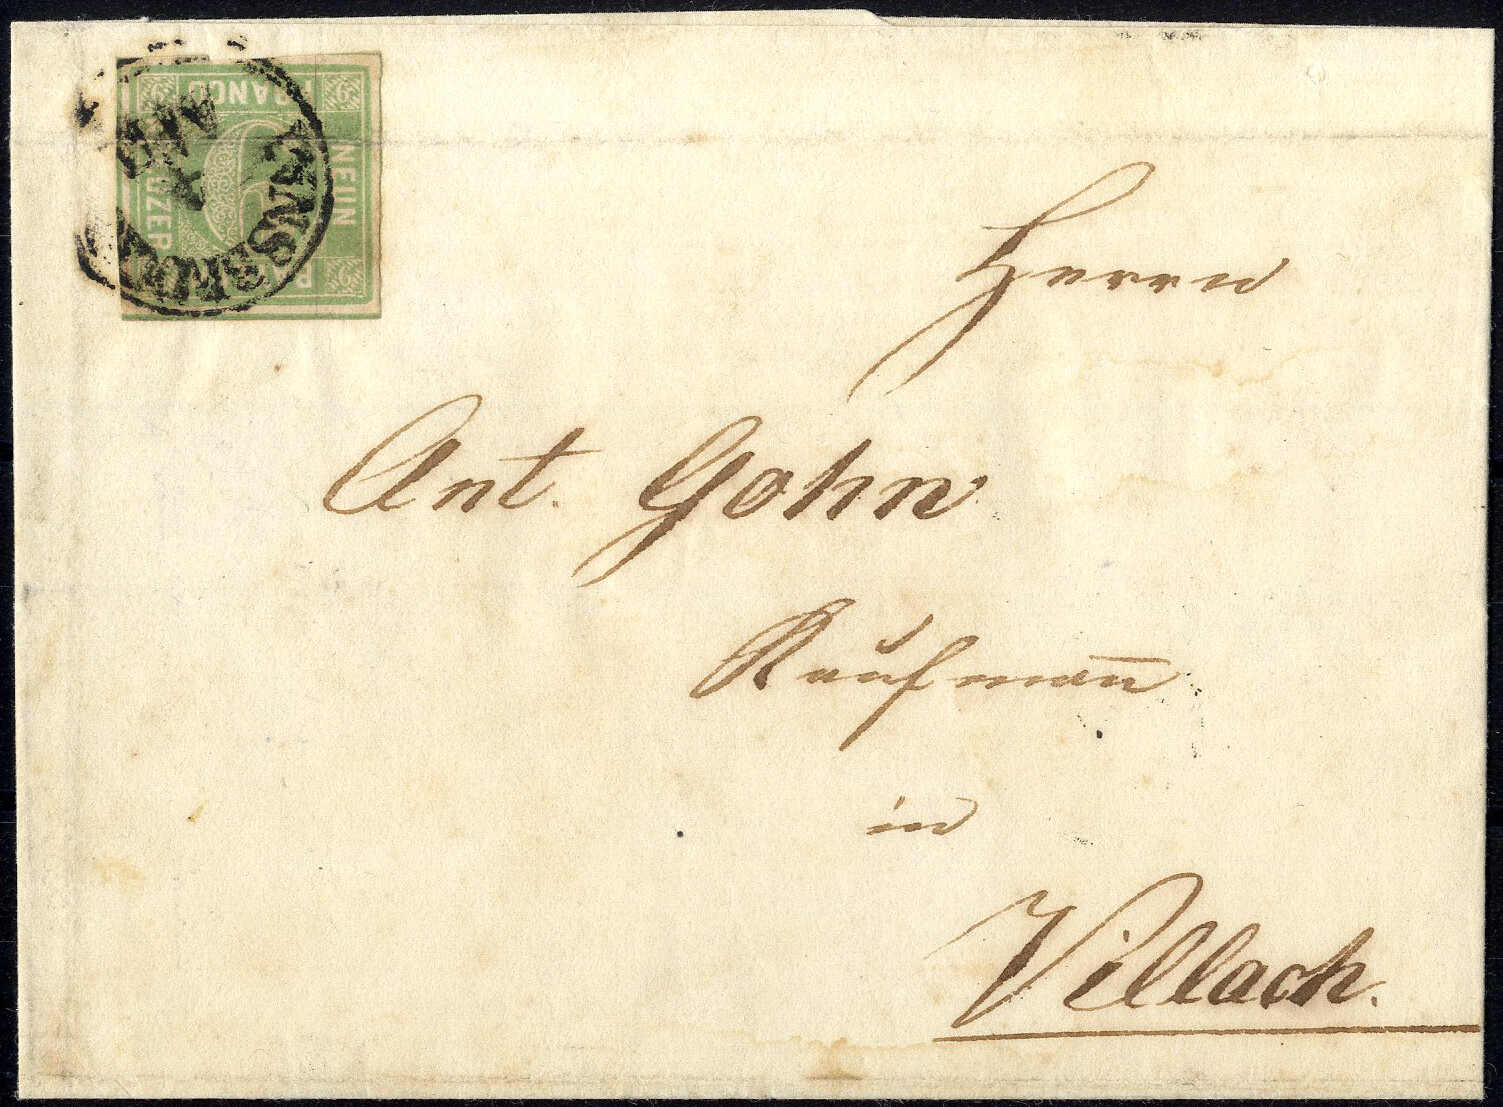 FRANCO
NEUN
AUG
Herrn
Ant. Gohn
Kaufman̅
in
Villach.